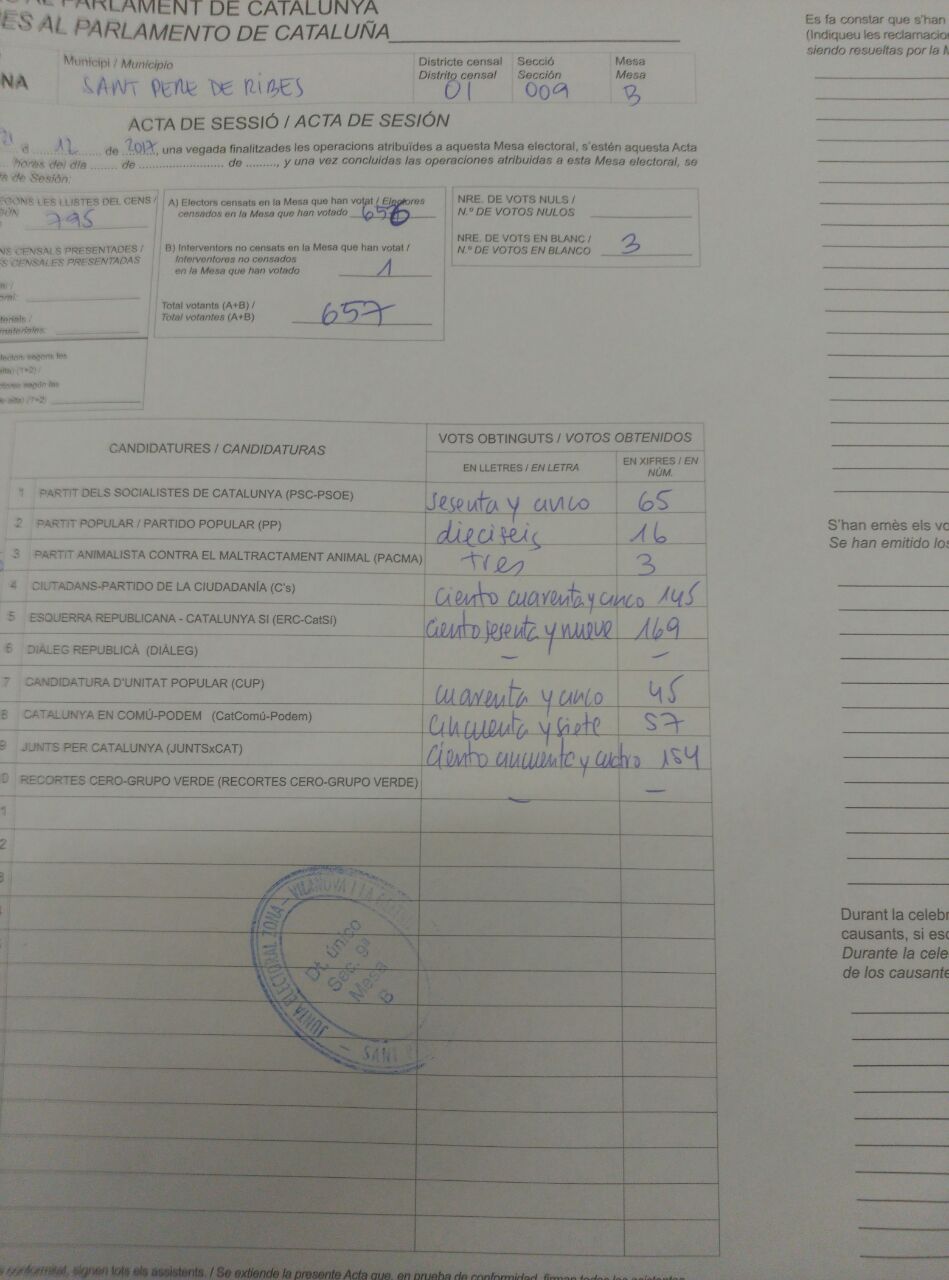 AL PARLAMENT DE CATALUNYA
AL PARLAMENTO DE CATALUÑA
NA
Municipi / Municipio
SANT PERE DE RIBES
Districte censal
Distrito censal
01
Secció
Sección
009
Mesa
Mesa
B
ACTA DE SESSIÓ / ACTA DE SESIÓN
21 a 12 de 2017, una vegada finalitzades les operacions atribuïdes a aquesta Mesa electoral, s'estén aquesta Acta
horas del día de de , y una vez concluidas las operaciones atribuidas a esta Mesa electoral, se
de Sesión:
LES LLISTES DEL CENS /
795
CENSALS PRESENTADES /
CENSALES PRESENTADAS
A) Electors censats en la Mesa que han votat / Electores
censados en la Mesa que han votado 656
B) Interventors no censats en la Mesa que han votat /
Interventores no censados
en la Mesa que han votado 1
Total votants (A+B) /
Total votantes (A+B) 657
NRE. DE VOTS NULS /
N.º DE VOTOS NULOS
NRE. DE VOTS EN BLANC /
N.º DE VOTOS EN BLANCO 3
CANDIDATURES / CANDIDATURAS
VOTS OBTINGUTS / VOTOS OBTENIDOS
EN LLETRES / EN LETRA
EN XIFRES / EN
NÚM.
1 PARTIT DELS SOCIALISTES DE CATALUNYA (PSC-PSOE) sesenta y cinco 65
2 PARTIT POPULAR / PARTIDO POPULAR (PP) dieciseis 16
3 PARTIT ANIMALISTA CONTRA EL MALTRACTAMENT ANIMAL (PACMA) tres 3
4 CIUTADANS-PARTIDO DE LA CIUDADANÍA (C's) ciento cuarenta y cinco 145
5 ESQUERRA REPUBLICANA - CATALUNYA SI (ERC-CatSí) ciento sesenta y nueve 169
6 DIÀLEG REPUBLICÀ (DIÀLEG) – –
7 CANDIDATURA D'UNITAT POPULAR (CUP) cuarenta y cinco 45
8 CATALUNYA EN COMÚ-PODEM (CatComú-Podem) cincuenta y siete 57
9 JUNTS PER CATALUNYA (JUNTSxCAT) ciento cincuenta y cuatro 154
0 RECORTES CERO-GRUPO VERDE (RECORTES CERO-GRUPO VERDE) – –
JUNTA ELECTORAL ZONA – VILANOVA I LA
Dt. único
Sec. 9ª
Mesa
B
conformitat, signen tots els assistents. / Se extiende la presente Acta que, en prueba de conformidad, firman todos los asistentes
Es fa constar que s'han
(Indiqueu les
siendo resueltas por la
S'han emès els
Se han emitido los
Durant la
causants, si
Durante la
de los